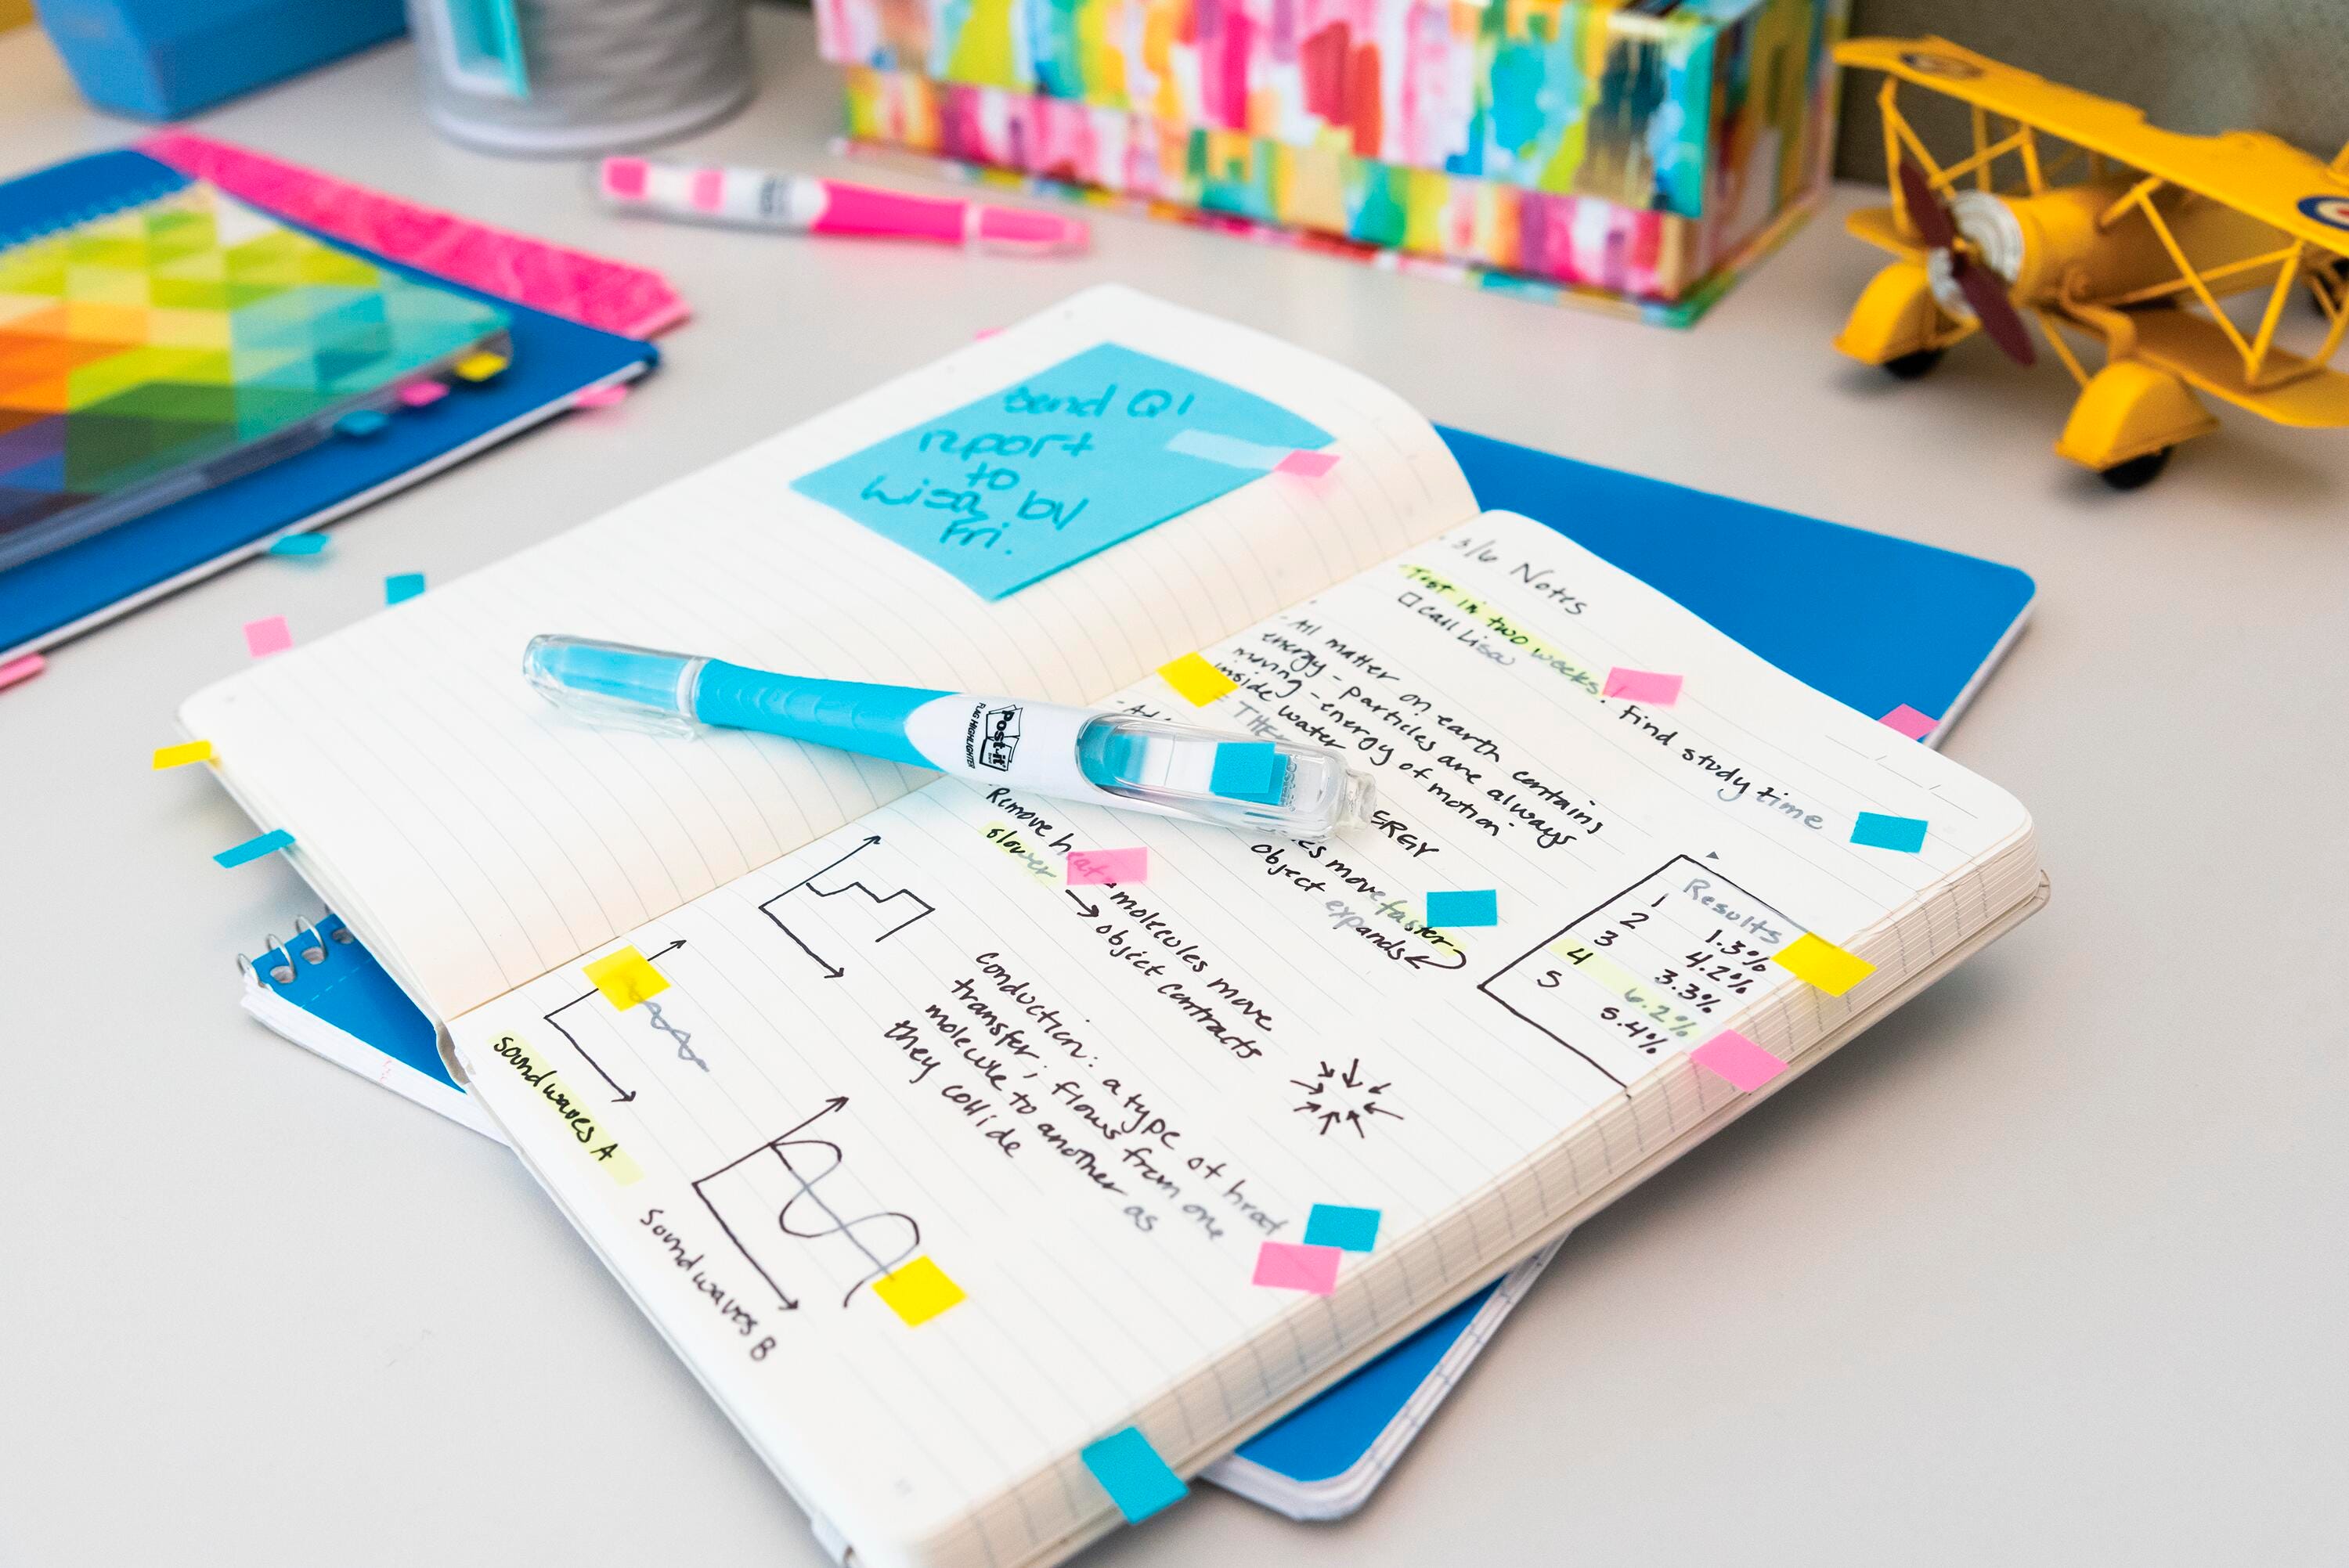 Send Q1
report
to
Lisa by
Fri.
3/6 Notes
- Test in two weeks! Find study time
call Lisa
- All matter on earth contains
energy - particles are always
moving - energy of motion
inside water
= THE ERGY
- Ad es move faster
object expands
Remove heat molecules move
slower → object contracts
Conduction: a type of heat
transfer; flows from one
molecule to another as
they collide
Results
1 1.3%
2 4.2%
3 3.3%
4 6.2%
5 5.4%
Soundwaves A
Soundwaves B
Post-it
FLAG HIGHLIGHTER